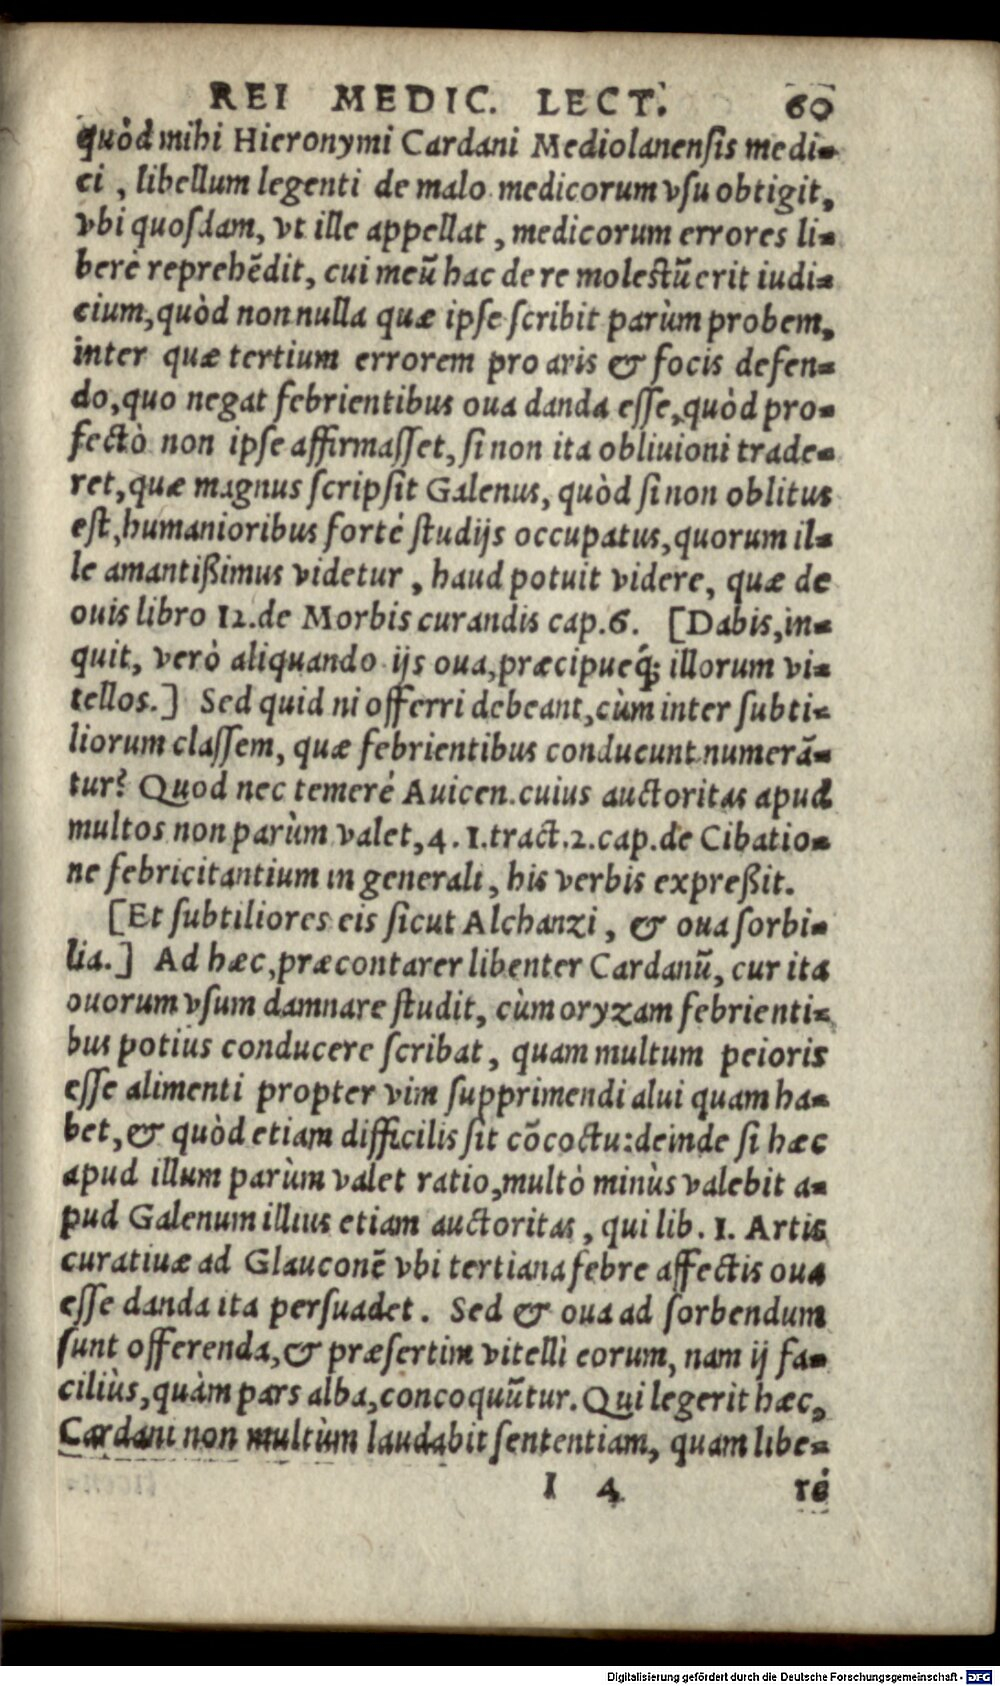 REI MEDIC. LECT. 60
quòd mihi Hieronymi Cardani Mediolanensis medi-
ci, libellum legenti de malo medicorum vsu obtigit,
vbi quosdam, vt ille appellat, medicorum errores li-
berè reprehẽdit, cui meũ hac de re molestũ erit iudi-
cium, quòd nonnulla quæ ipse scribit parùm probem,
inter quæ tertium errorem pro aris & focis defen-
do, quo negat febrientibus oua danda esse, quòd pro-
fectò non ipse affirmasset, si non ita obliuioni trade-
ret, quæ magnus scripsit Galenus, quòd si non oblitus
est, humanioribus fortè studijs occupatus, quorum il-
le amantißimus videtur, haud potuit videre, quæ de
ouis libro 12. de Morbis curandis cap. 6. [Dabis, in-
quit, verò aliquando ijs oua, præcipueq́; illorum vi-
tellos.] Sed quid ni offerri debeant, cùm inter subti-
liorum classem, quæ febrientibus conducunt numerã-
tur? Quod nec temerè Auicen. cuius auctoritas apud
multos non parùm valet, 4. 1. tract. 2. cap. de Cibatio-
ne febricitantium in generali, his verbis expreßit.
[Et subtiliores eis sicut Alchanzi, & oua sorbi-
lia.] Ad hæc, præcontarer libenter Cardanũ, cur ita
ouorum vsum damnare studit, cùm oryzam febrienti-
bus potius conducere scribat, quam multum peioris
esse alimenti propter vim supprimendi alui quam ha-
bet, & quòd etiam difficilis sit cõcoctu: deinde si hæc
apud illum parùm valet ratio, multò minùs valebit a-
pud Galenum illius etiam auctoritas, qui lib. 1. Artis
curatiuæ ad Glauconẽ vbi tertiana febre affectis oua
esse danda ita persuadet. Sed & oua ad sorbendum
sunt offerenda, & præsertim vitelli eorum, nam ij fa-
ciliùs, quàm pars alba, concoquũtur. Qui legerit hæc,
Cardani non multùm laudabit sententiam, quam libe-
I 4 rè
Digitalisierung gefördert durch die Deutsche Forschungsgemeinschaft - DFG